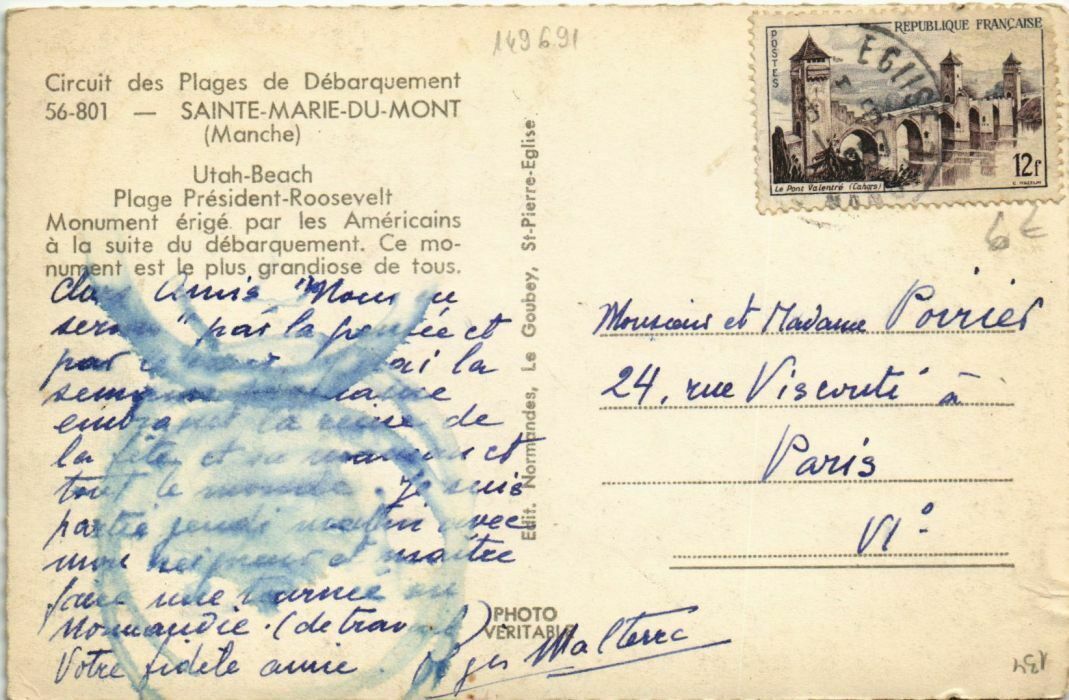 149691
Circuit des Plages de Débarquement
56-801 — SAINTE-MARIE-DU-MONT
(Manche)
Utah-Beach
Plage Président-Roosevelt
Monument érigé par les Américains
à la suite du débarquement. Ce mo-
nument est le plus grandiose de tous.
Amis "Nous
par la pensée et
par la
semaine
la reine de
la fête et et
tout le monde. Je suis
partie jeudi matin avec
mon seigneur et maître
faire une tournée en
Normandie. (de travail)
Votre fidèle amie. Malterre
PHOTO
VERITABLE
Edit. Normandes, Le Goubey, St-Pierre-Eglise
POSTES
REPUBLIQUE FRANÇAISE
Le Pont Valentré (Cahors)
12f
6€
Monsieur et Madame Poirier
24, rue Visconti à
Paris
VI°
134